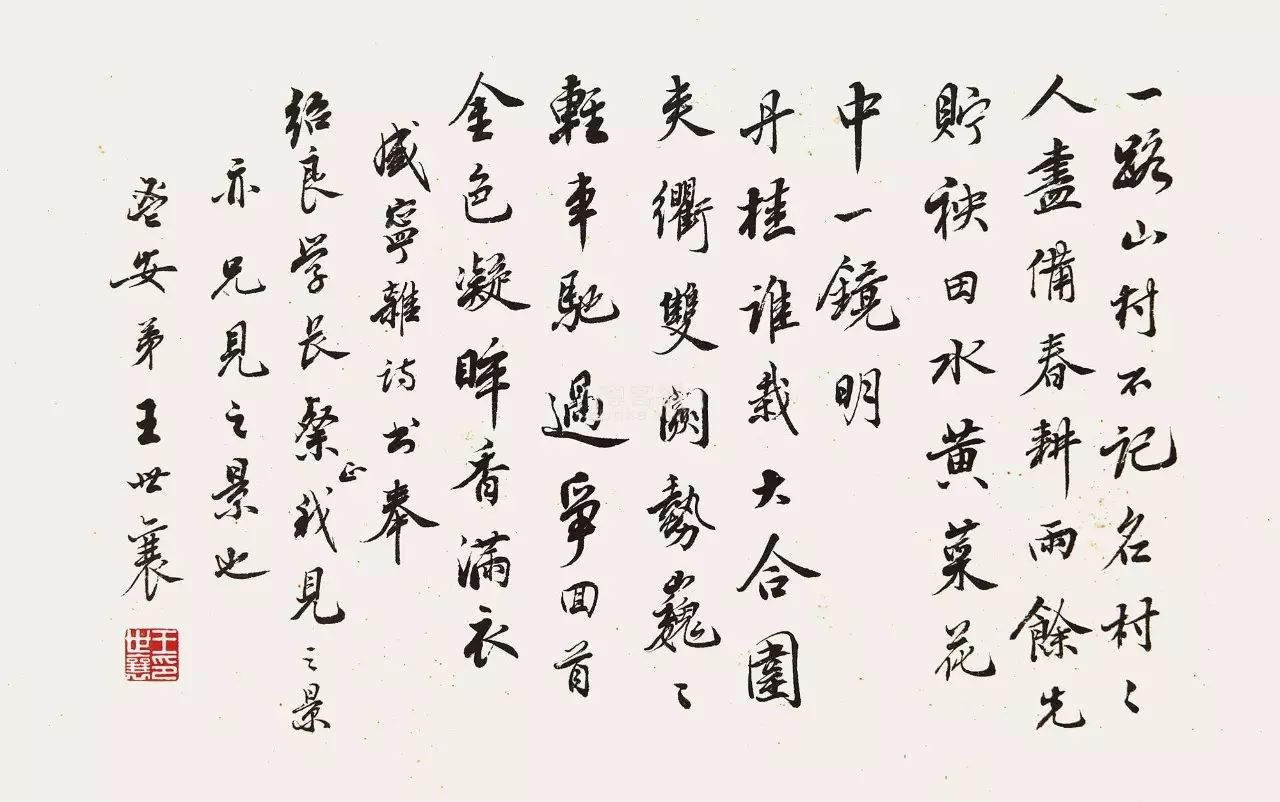 一路山村不记名村々
人盡備春耕雨餘先
貯秧田水黄菜花
中一鏡明
丹桂谁栽大合圍
夹衢雙闕勢巍々
輕車馳過爭回首
金色凝眸香滿衣
咸寧雜诗书奉
绍良学长粲正我見之景
亦兄見之景也
弟王世襄
王世襄印